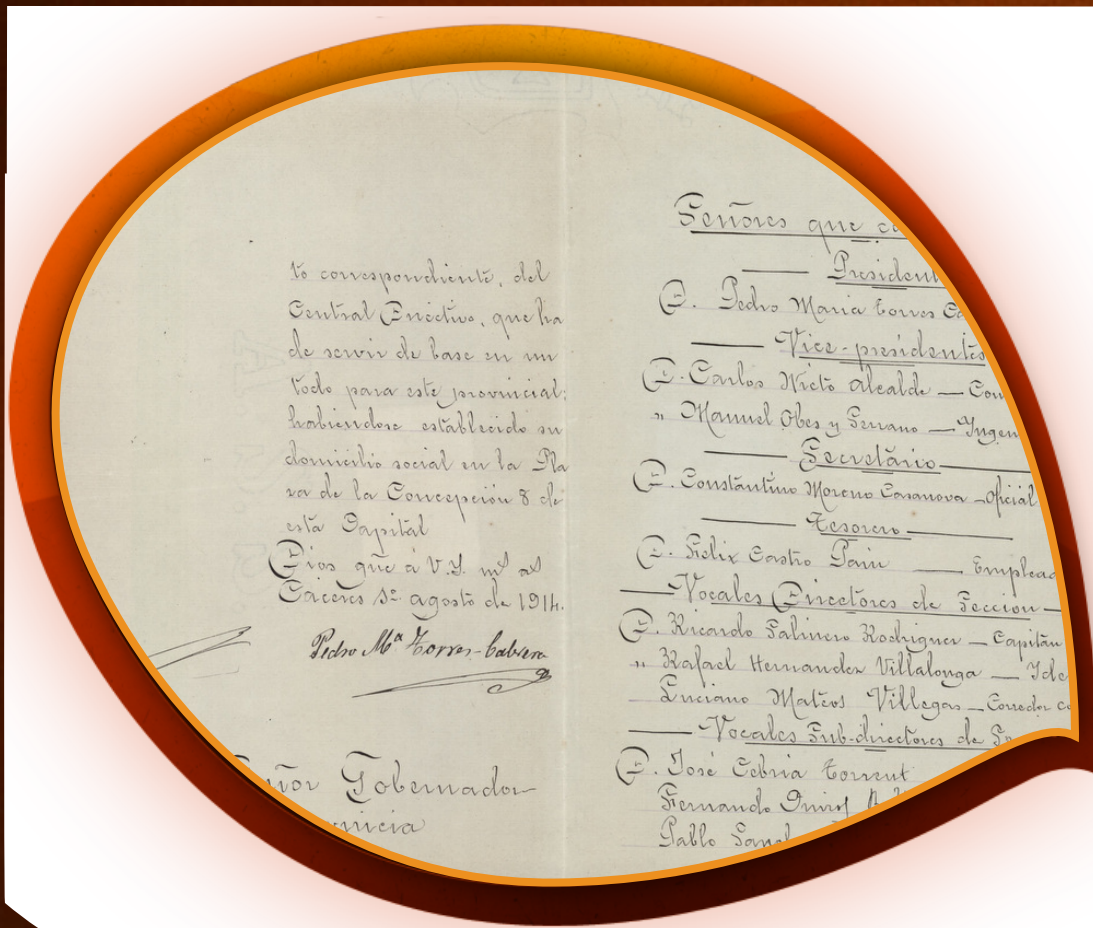 to correspondiente, del
Central Directivo, que ha
de servir de base en un
todo para este provincial;
habiendose establecido su
domicilio social en la Pla
za de la Concepción 8 de
esta Capital
Dios que á V.S. ms as
Cáceres 1º agosto de 1914.
Pedro Mª Torres-Cabrera
Señor Gobernador
Señores que
President
D. Pedro Maria Torres Ca
Vice-presidentes
D. Carlos Nieto Alcalde — Com
" Manuel Obes y Serrano — Ingen
Secretário
D. Constantino Moreno Casanova — oficial
Tesorero
D. Felix Castro — Emplead
Vocales Directores de Seccion
D. Ricardo Salinero Rodriguez — Capitán
" Rafael Hernandez Villalonga — Ide
Luciano Mateos Villegas — Corredor co
Vocales Sub-directores de
D. José Cebria Torrent
Fernando
Pablo